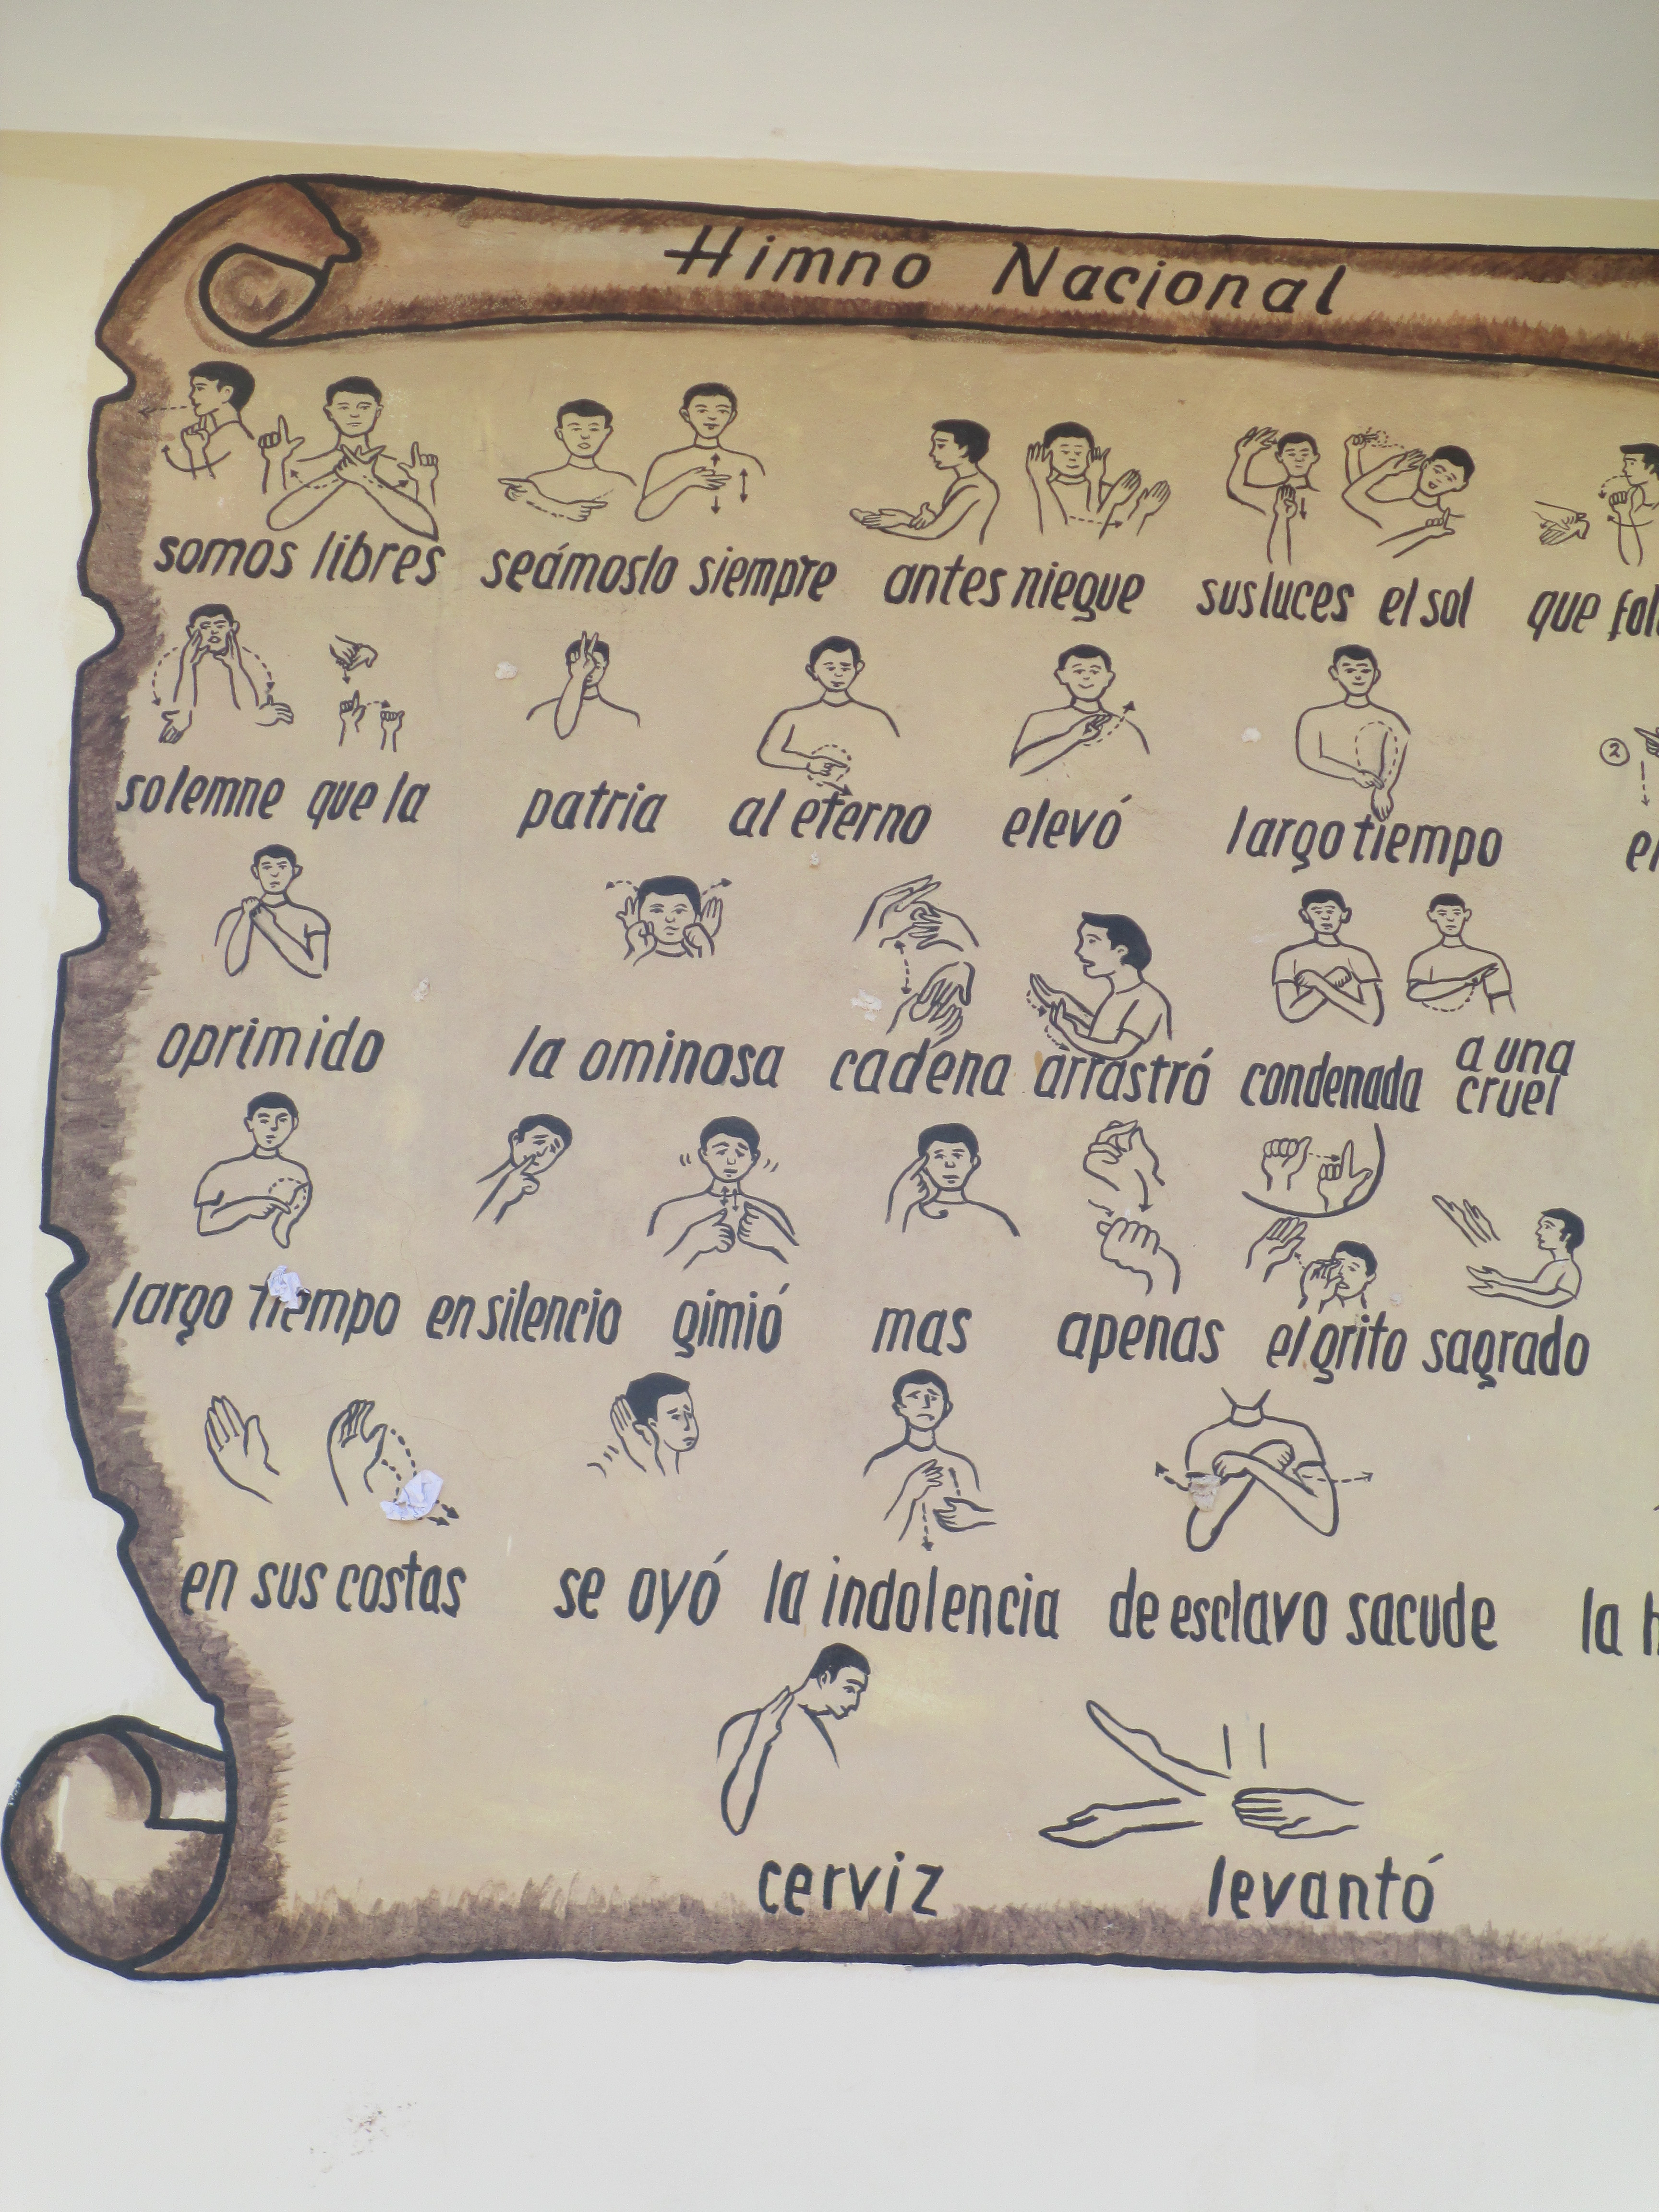 Himno Nacional
somos libres seámoslo siempre antes niegue sus luces el sol que fal
solemne que la patria al eterno elevó largo tiempo
2
oprimido la ominosa cadena arrastró condenada a una cruel
largo tiempo en silencio gimió mas apenas el grito sagrado
en sus costas se oyó la indolencia de esclavo sacude la
cerviz levantó